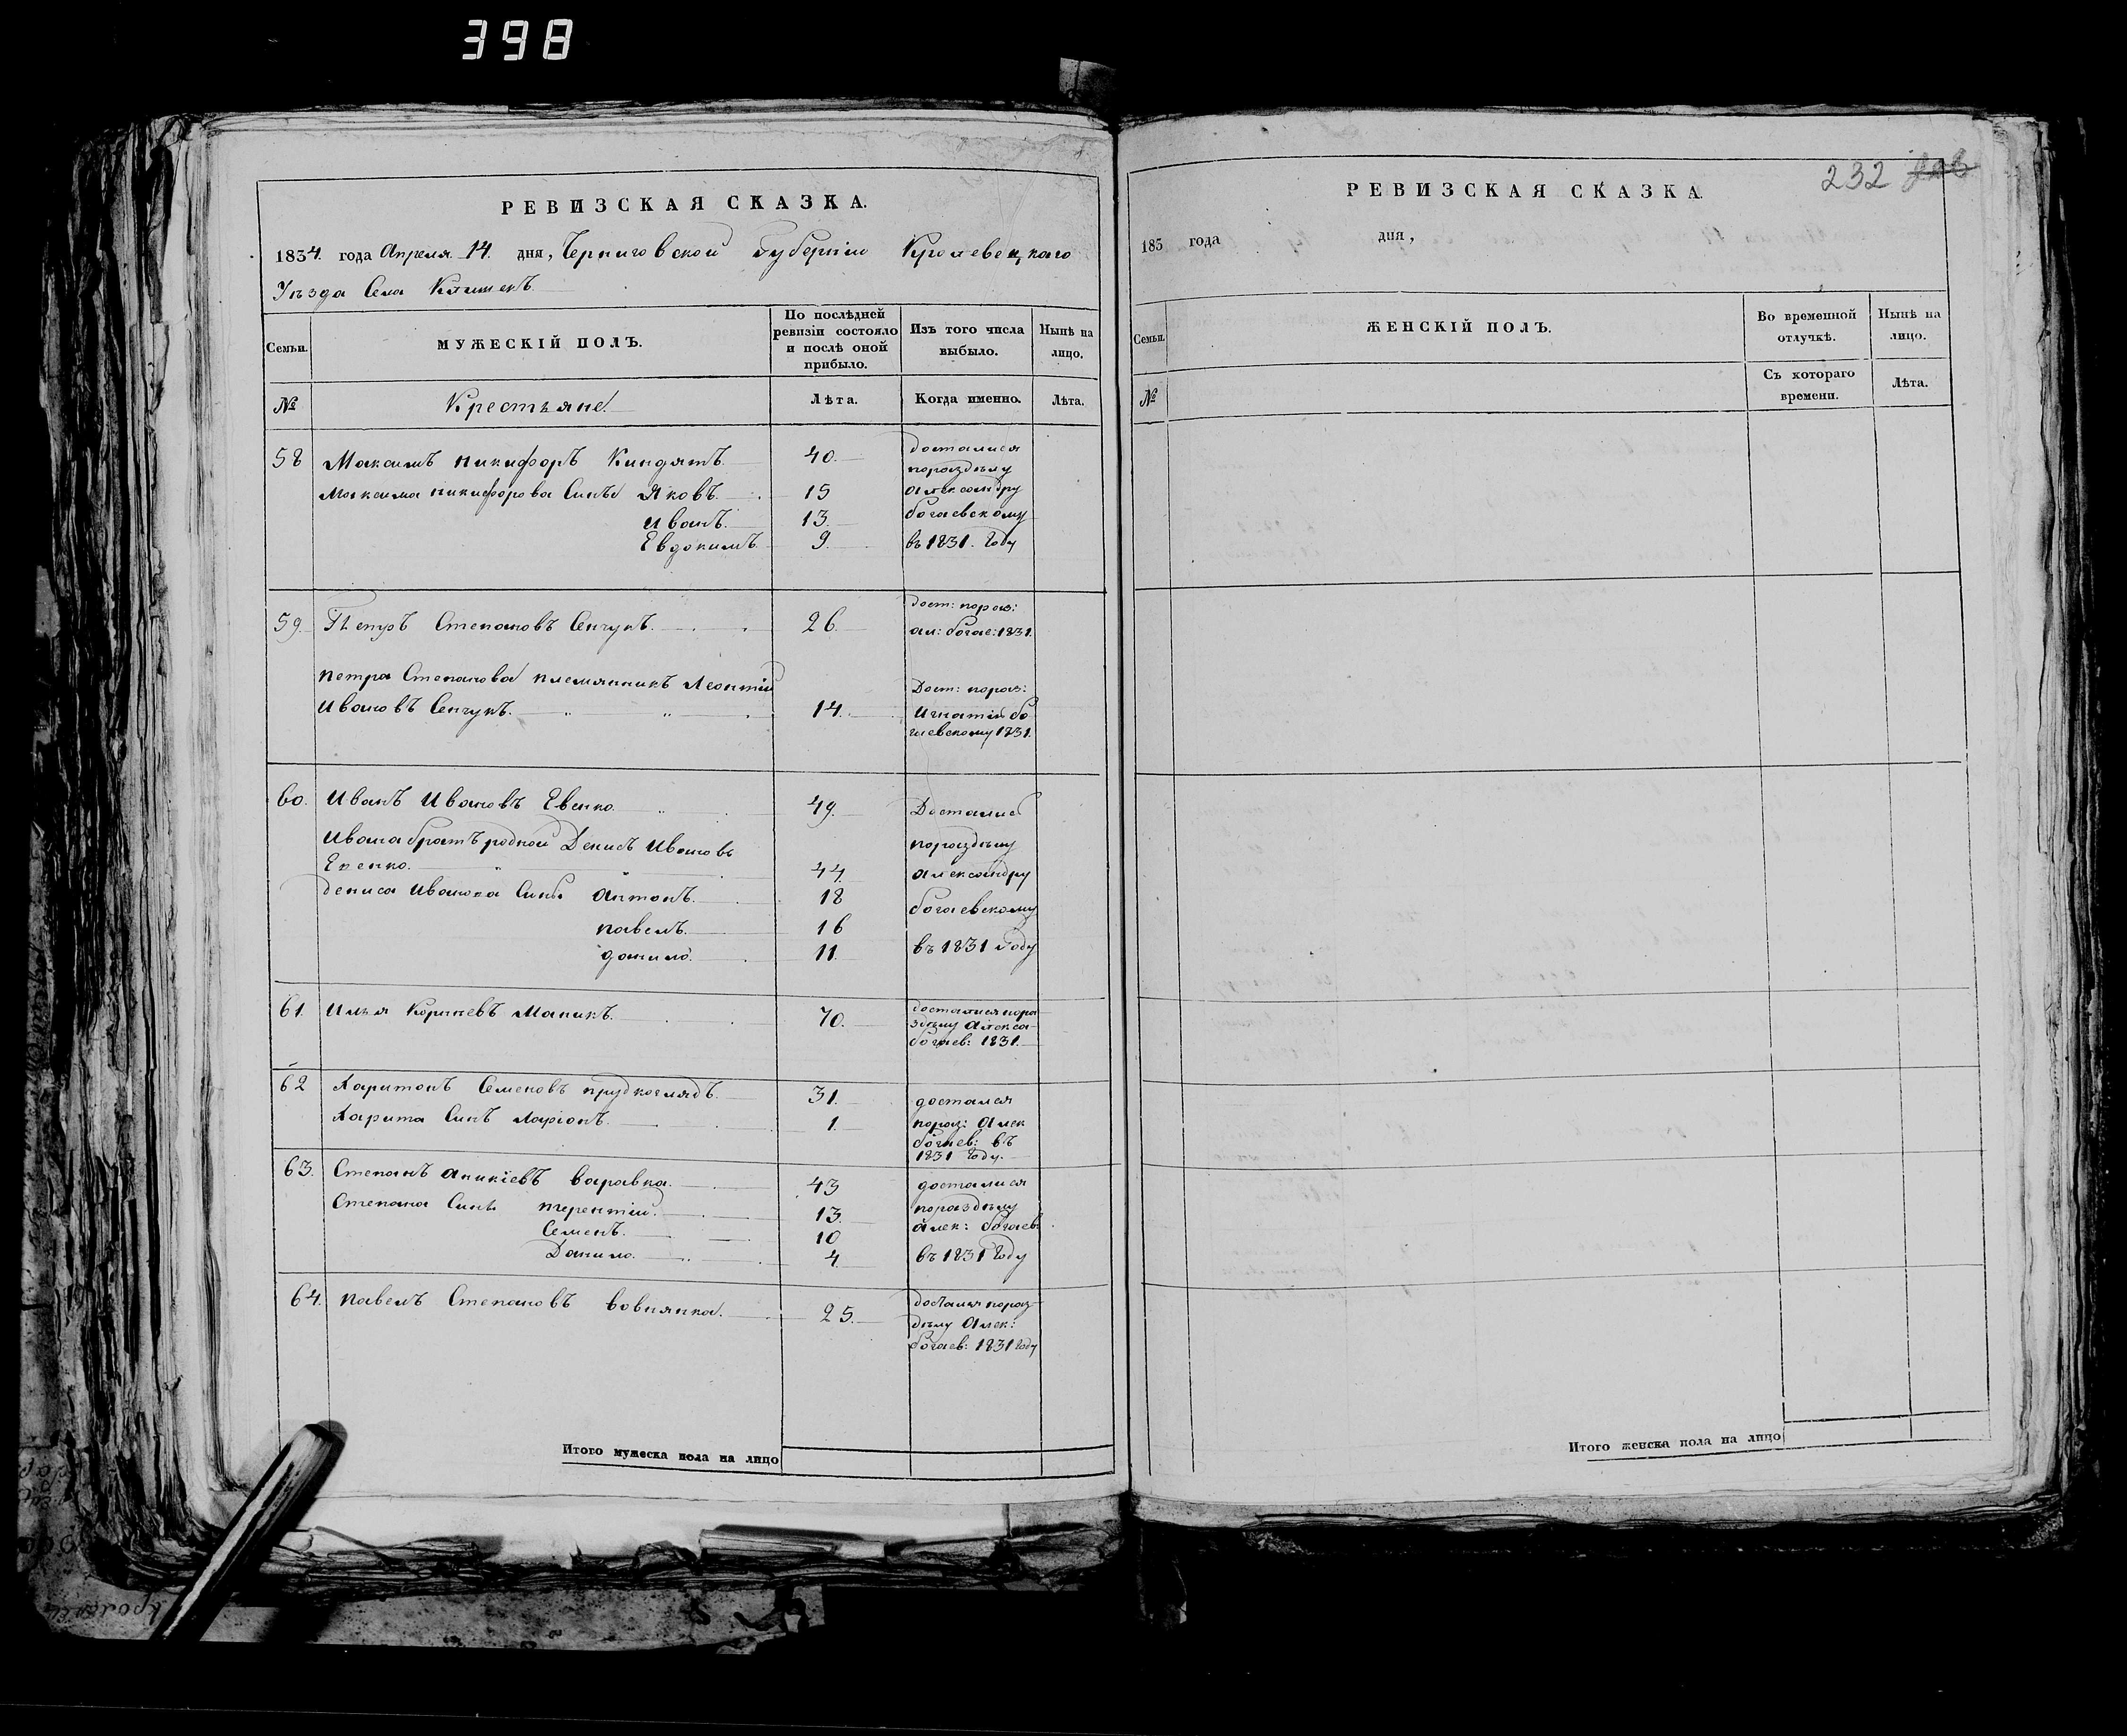 398
РЕВИЗСКАЯ СКАЗКА.
1834. года Апреля 14. дня, Черниговской Губерніи Кролевецкаго
Уъзда Села Клишекъ
Семьи.
МУЖЕСКІЙ ПОЛЪ.
По послѣдней ревизіи состояло и послѣ оной прибыло.
Изъ того числа выбыло.
Нынѣ на лицо.
№
Крестьяне.
Лѣта.
Когда именно.
Лѣта.
58 Максимъ никифоръ Киндятъ 40. досталися
поразделу
Максима никифорова Сынъ Яковъ 15 александру
Иванъ. 13. богаевскому
Евдокимъ 9. въ 1831. Году
59. Петръ Степановъ Сенчукъ. 26. дост: пораз:
ал: богае: 1831.
петра Степанова племянникъ Леонтій
Ивановъ Сенчукъ. 14. Дост: пораз:
Игнатію бо
гаевскому 1831.
60. Иванъ Ивановъ Евенко. 49. Достались
Ивана братъ родной Денисъ Ивановъ поразделу
Евенко. 44. александру
дениса Иванова Сынъ антонъ. 18 богаевскому
павелъ. 16
данило. 11. въ 1831 году
61. Илья Корнеевъ 70. досталися пора
зделу Алекса-
богаев: 1831.
62 Харитонъ Семеновъ прудкоглядъ. 31. достался
Харита Сынъ Ларіонъ. 1. пораз: Алек
богаев: въ
1831 Году.
63. Степанъ Аникіевъ варавка. 43 досталися
Степана Сынъ терентій. 13. поразделу
Семенъ. 10 Алек: богаев:
Данило. 4. въ 1831 Году
64. павелъ Степановъ вовнянка. 25. достался пораз
делу Алек:
богаев: 1831 году
Итого мужеска пола на лицо
232
РЕВИЗСКАЯ СКАЗКА
185 года дня,
Семьи.
ЖЕНСКІЙ ПОЛЪ.
Во временной отлучкѣ.
Нынѣ на лицо.
№
Съ котораго времени.
Лѣта.
Итого женска пола на лицо